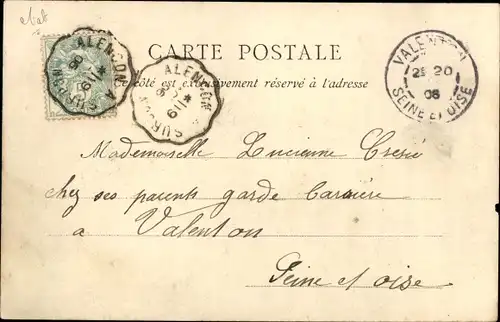 etat
CARTE POSTALE
Ce côté est exclusivement réservé à l'adresse
ALENÇON A SURDON
ALENÇON A SURDON
VALENTON
20
06
SEINE ET OISE
Mademoiselle Lucienne
chez ses parents garde Barrière
a Valenton
Seine et oise